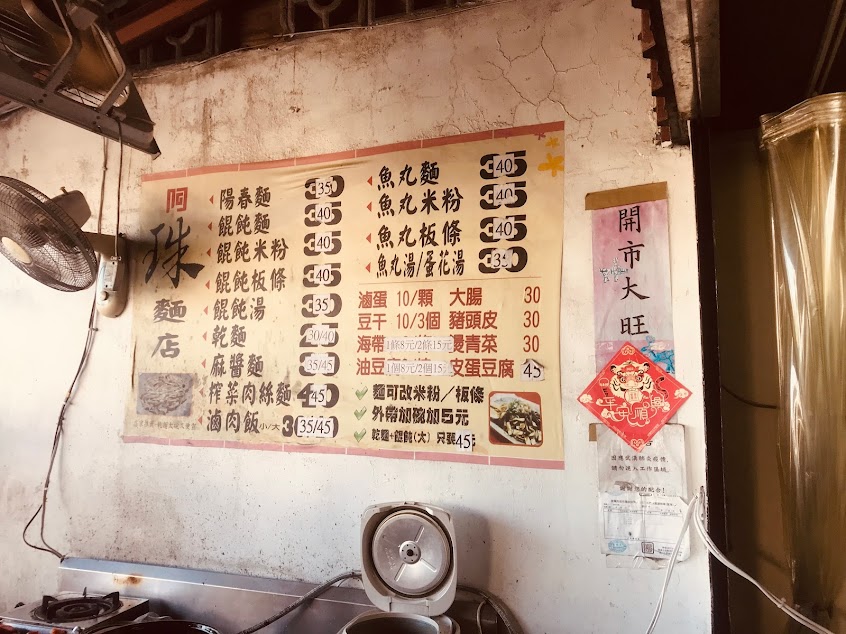 阿
珠
麵
店
陽春麵 35
餛飩麵 40
餛飩米粉 40
餛飩板條 40
餛飩湯 35
乾麵 30/40
麻醬麵 35/45
榨菜肉絲麵 45
滷肉飯 小/大 35/45
魚丸麵 40
魚丸米粉 40
魚丸板條 40
魚丸湯/蛋花湯 35
滷蛋 10/顆 大腸 30
豆干 10/3個 豬頭皮 30
海帶 1條8元/2條15元 燙青菜 30
油豆 1個8元/2個15元 皮蛋豆腐 45
麵可改米粉/板條
外帶加碗加5元
乾麵+餛飩(大) 只要45
開市大旺
平安順
因應武漢肺炎疫情,
請勿進入工作區域,
謝謝您的配合!